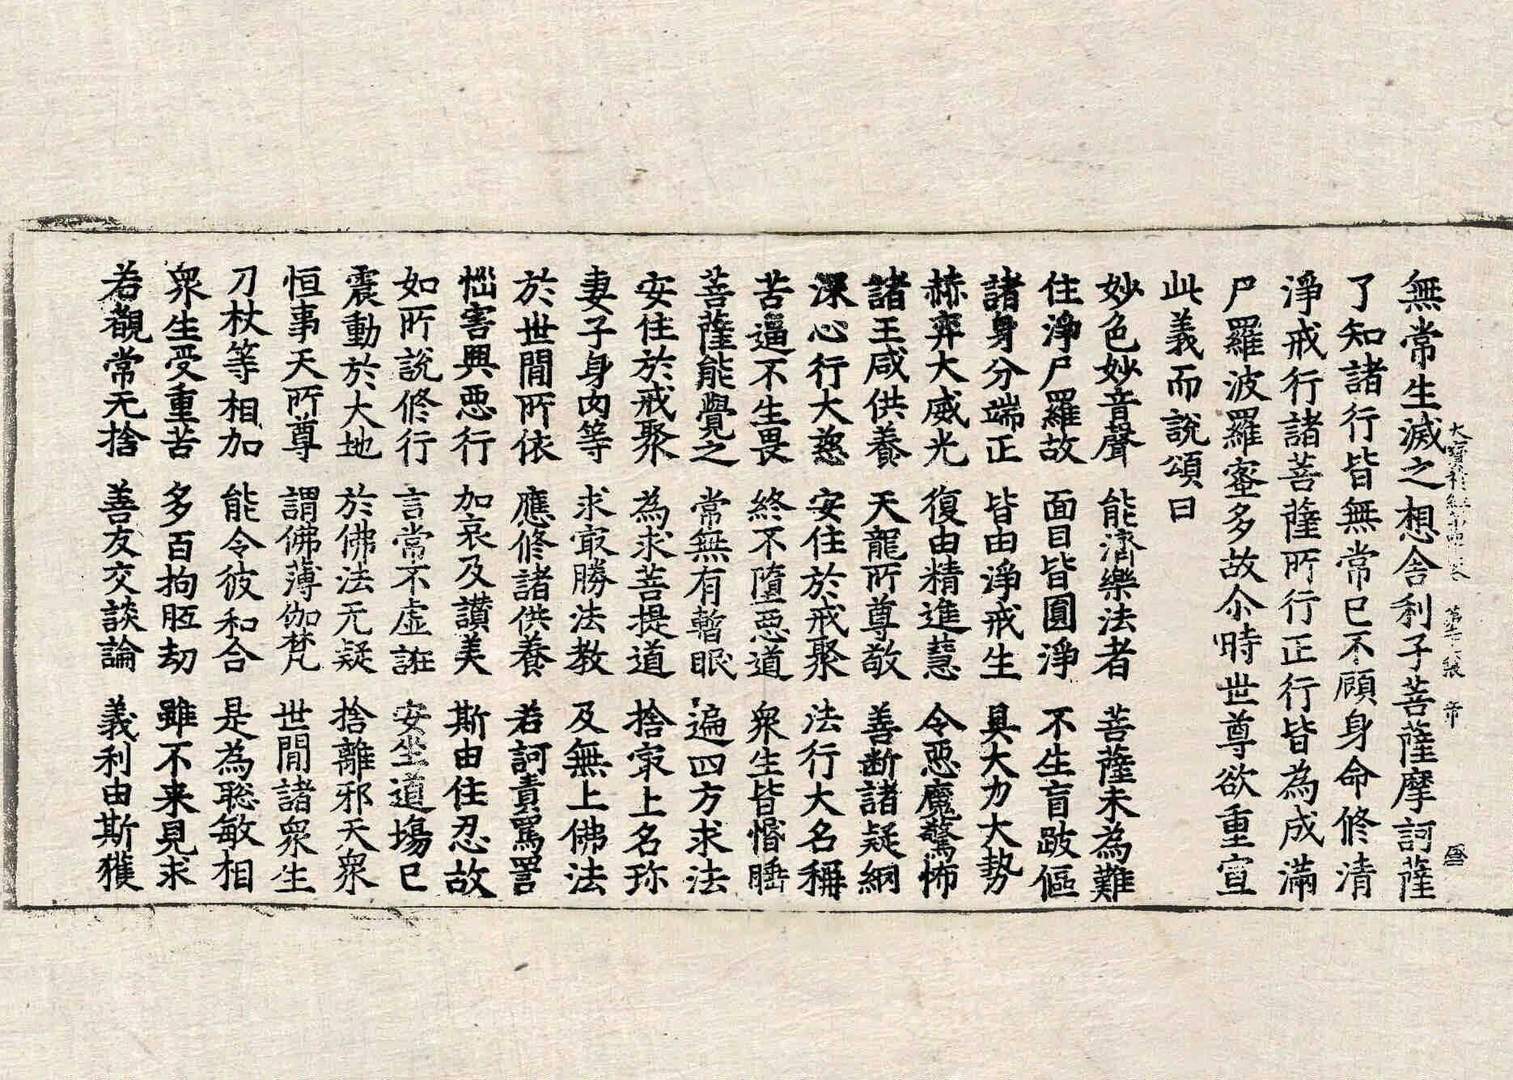 大寶積經 第 卷 第 張 帝
無常生滅之想舍利子菩薩摩訶薩
了知諸行皆無常已不顧身命修清
淨戒行諸菩薩所行正行皆為成滿
尸羅波羅蜜多故尒時世尊欲重宣
此義而說頌曰
妙色妙音聲 能濟樂法者 菩薩未為難
住淨尸羅故 面目皆圓淨 不生盲跛傴
諸身分端正 皆由淨戒生 具大力大勢
赫弈大威光 復由精進慧 令惡魔驚怖
諸王咸供養 天龍所尊敬 善断諸疑網
深心行大慈 安住於戒聚 法行大名稱
苦逼不生畏 終不墮惡道 眾生皆惛睡
菩薩能覺之 常無有暫眠 遍四方求法
安住於戒聚 為求菩提道 捨㝡上名珎
妻子身肉等 求㝡勝法教 及無上佛法
於世間所依 應修諸供養 若訶責罵詈
惱害興惡行 加哀及讚美 斯由住忍故
如所說修行 言常不虛誑 安坐道場已
震動於大地 於佛法无疑 捨離邪天眾
恒事天所尊 謂佛薄伽梵 世間諸眾生
刀杖等相加 能令彼和合 是為聡敏相
眾生受重苦 多百拘胝劫 雖不来見求
若覩常无捨 善友交談論 義利由斯獲